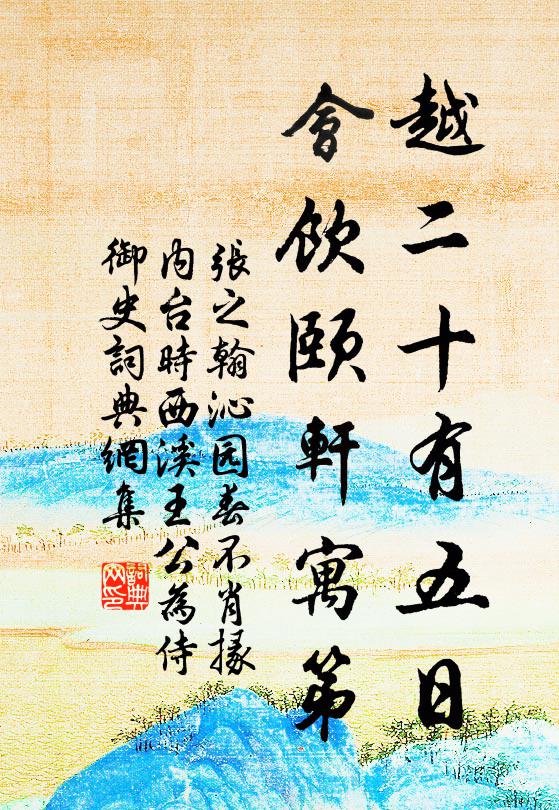 越二十有五日
會飲頤軒寓第
張之翰沁园春不肖掾
内台時西溪王公為侍
御史詞典網集
詞典网印